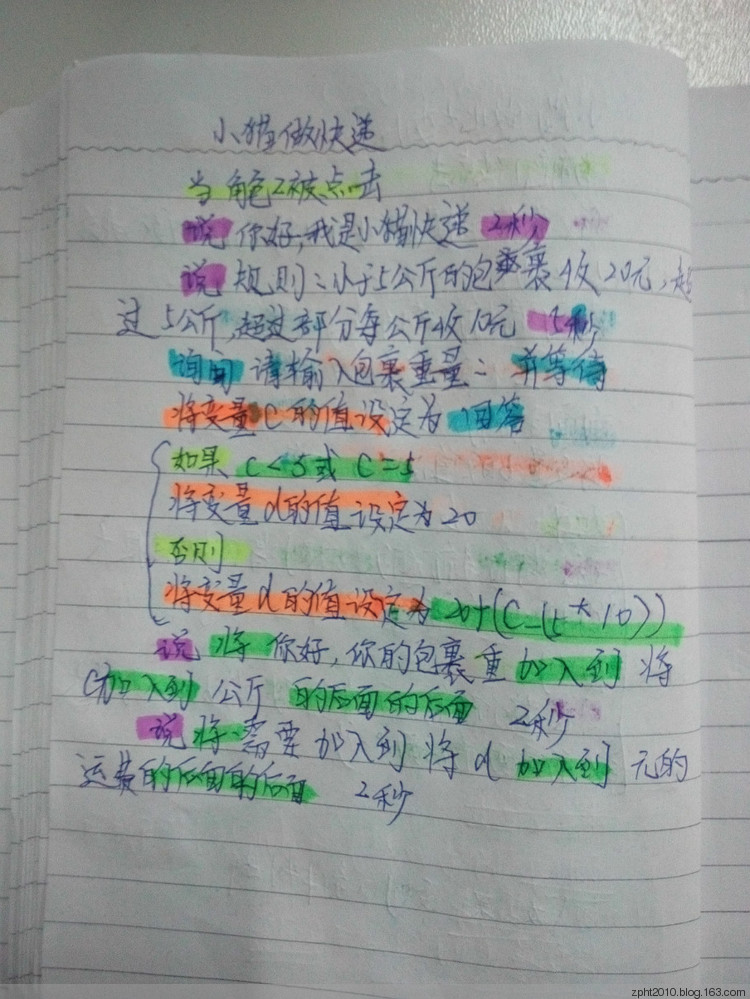 小猫做快递
当角色2被点击
说 你好,我是小猫快递 2秒
说 规则:小于5公斤的包裹收20元,超
过5公斤,超过部分每公斤收10元 15秒
询问 请输入包裹重量: 并等待
将变量C的值设定为 回答
如果 c<5或 C=5
将变量d的值设定为20
否则
将变量d的值设定为 20+(C-(5*10))
说 将 你好,你的包裹重 加入到 将
C加入到 公斤 的后面的后面 2秒
说 将 需要 加入到 将 d 加入到 元的
运费的后面的后面 2秒
zpht2010.blog.163.com